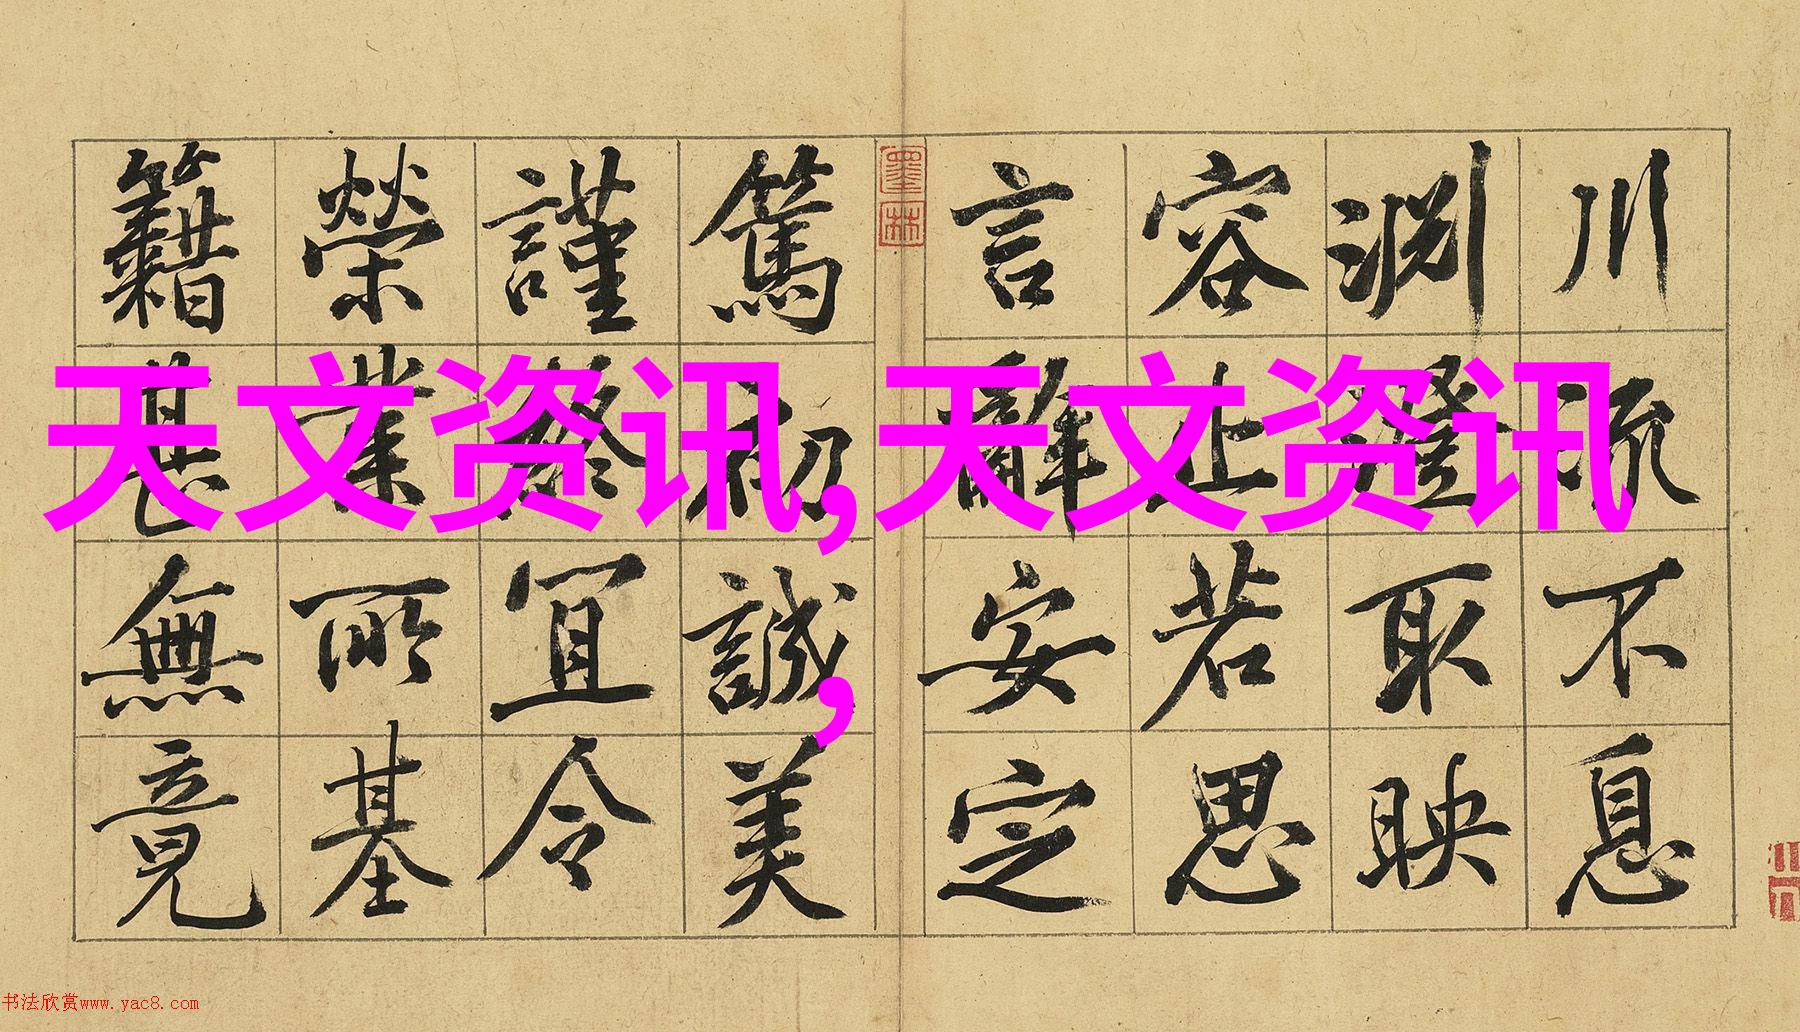 川流不息
淵澄取映
容止若思
言辭安定
墨林
篤初誠美
謹終宜令
榮業所基
籍甚無竟
天文资讯,天文资讯
,
书法欣赏www.yac8.com